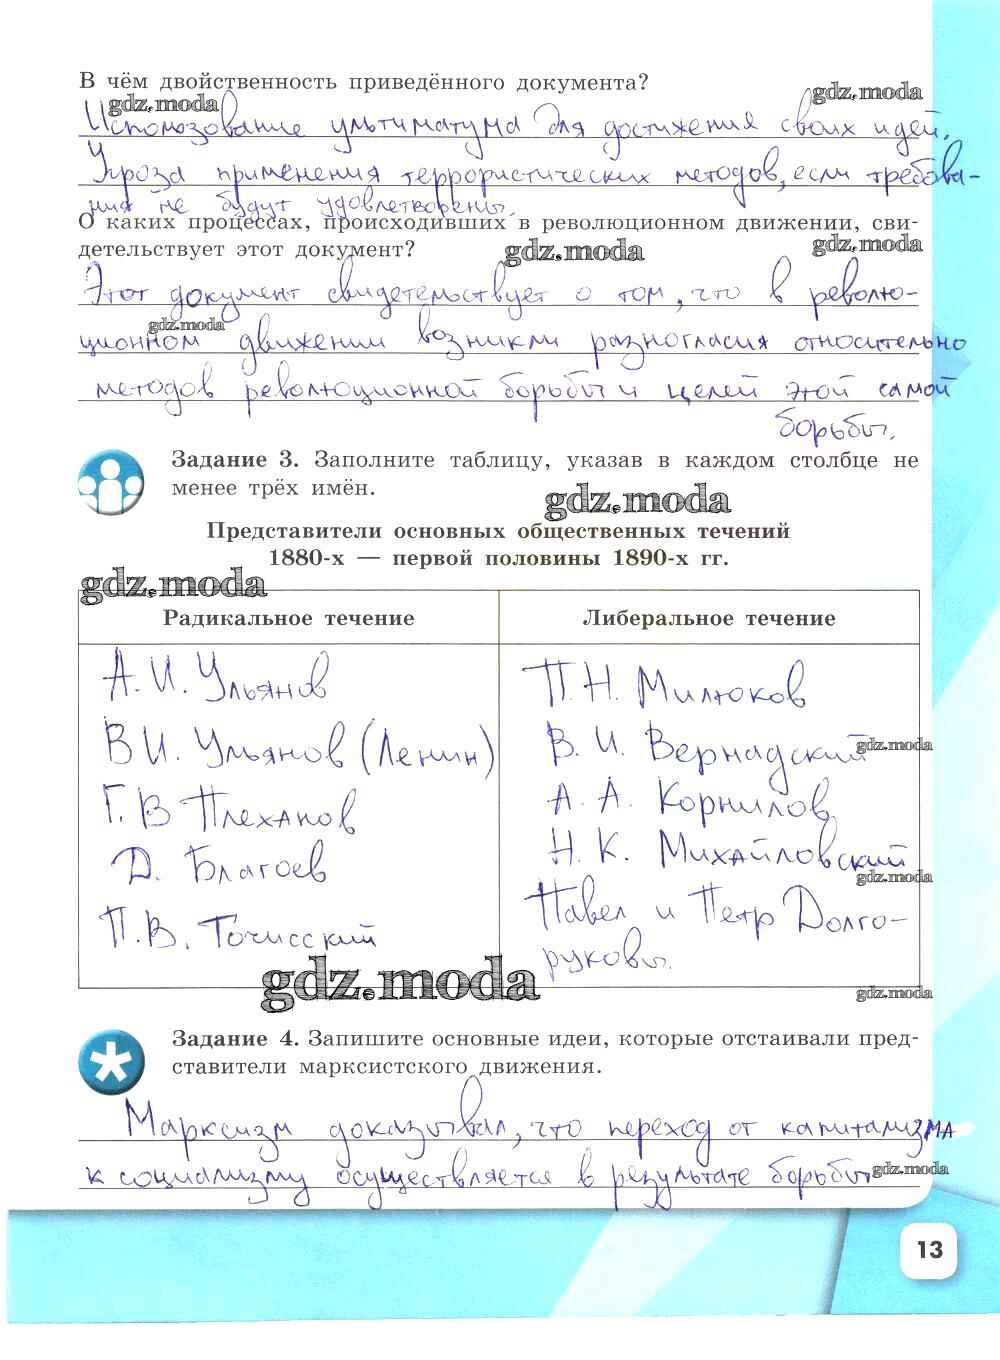 В чём двойственность приведённого документа?
gdz.moda
gdz.moda
Использование ультиматума для достижения своих идей.
Угроза применения террористических методов, если требова-
ния не будут удовлетворены.
О каких процессах, происходивших в революционном движении, сви-
детельствует этот документ?
gdz.moda
gdz.moda
Этот документ свидетельствует о том, что в револю-
gdz.moda
ционном движении возникли разногласия относительно
методов революционной борьбы и целей этой самой
борьбы.
Задание 3. Заполните таблицу, указав в каждом столбце не
менее трёх имён.
gdz.moda
Представители основных общественных течений
1880-х — первой половины 1890-х гг.
gdz.moda
Радикальное течение
Либеральное течение
А. И. Ульянов
П. Н. Милюков
В И. Ульянов (Ленин)
В. И. Вернадский
gdz.moda
Г. В Плеханов
А. А. Корнилов
Д. Благоев
Н. К. Михайловский
gdz.moda
П. В. Точисский
Павел и Петр Долго-
руковы.
gdz.moda
gdz.moda
Задание 4. Запишите основные идеи, которые отстаивали пред-
ставители марксистского движения.
Марксизм доказывал, что переход от капитализма
к социализму осуществляется в результате борьбы
gdz.moda
13